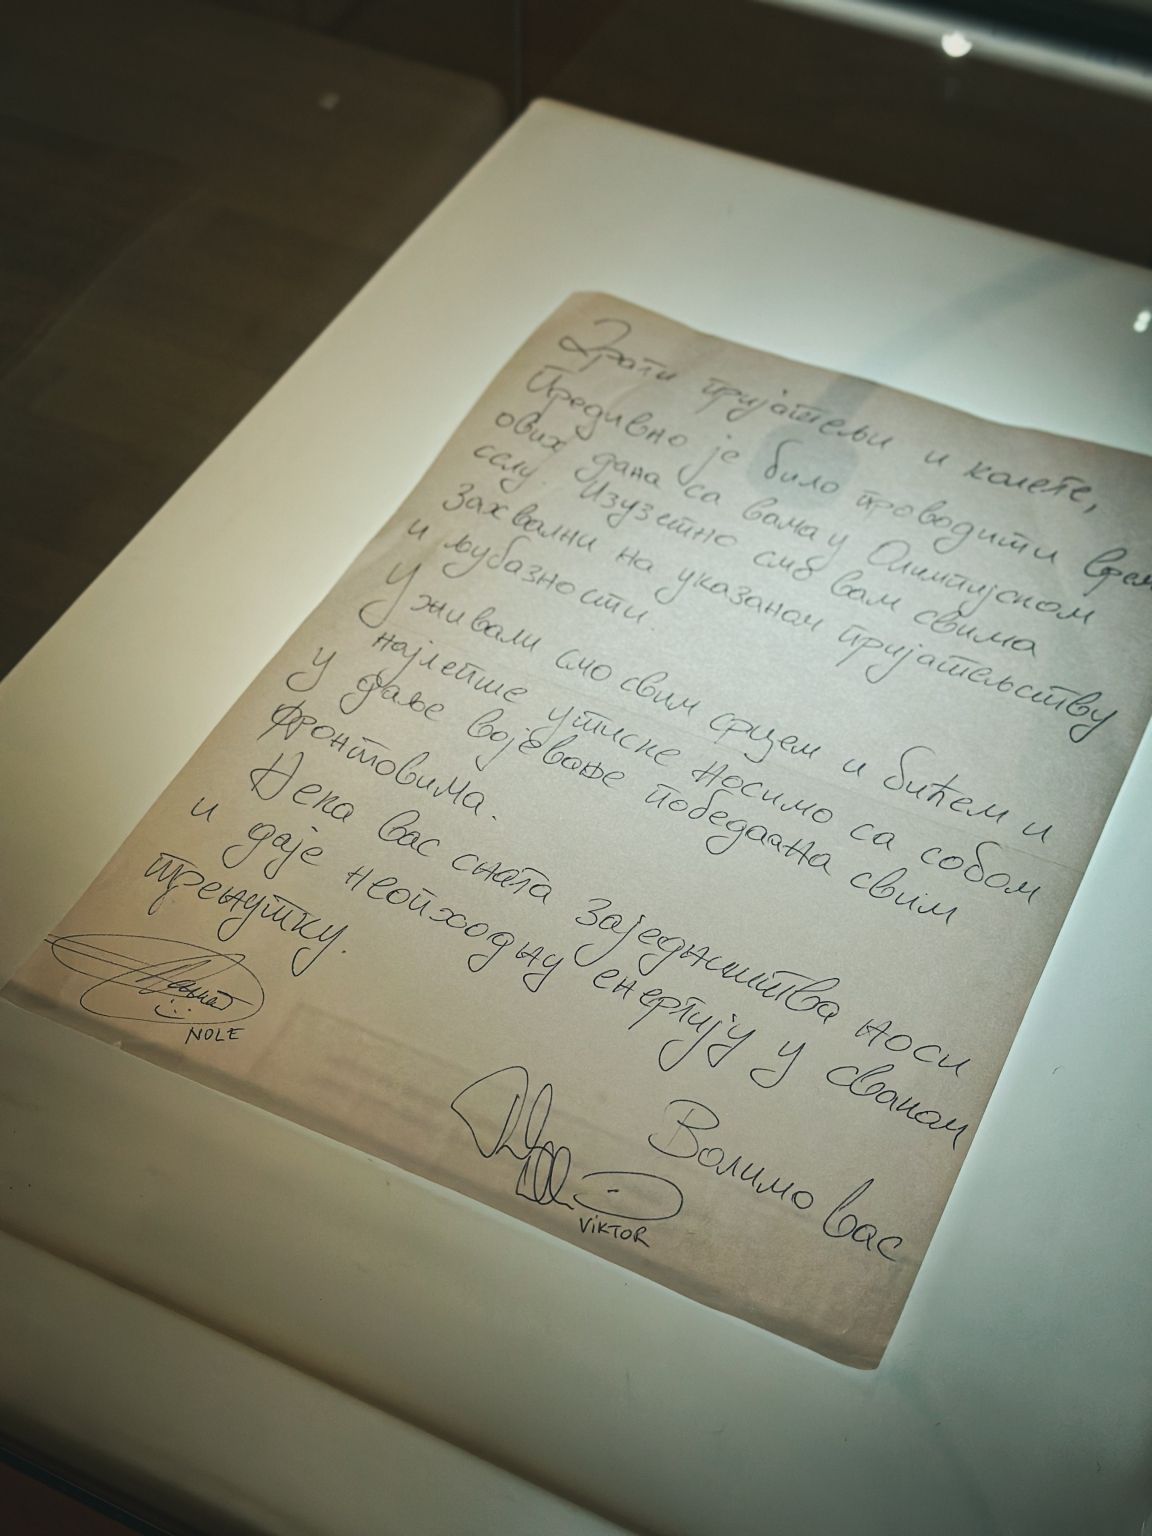 Драги пријатељи и колеге,
Предивно је било проводити време
ових дана са вама у Олимпијском
селу. Изузетно смо вам свима
захвални на указаном пријатељству
и љубазности.
Уживали смо свим срцем и бићем и
најлепше утиске носимо са собом
у даље војевање победа на свим
фронтовима.
Нека вас снага заједништва носи
и даје неопходну енергију у сваком
тренутку.
NOLE
Волимо вас
VIKTOR